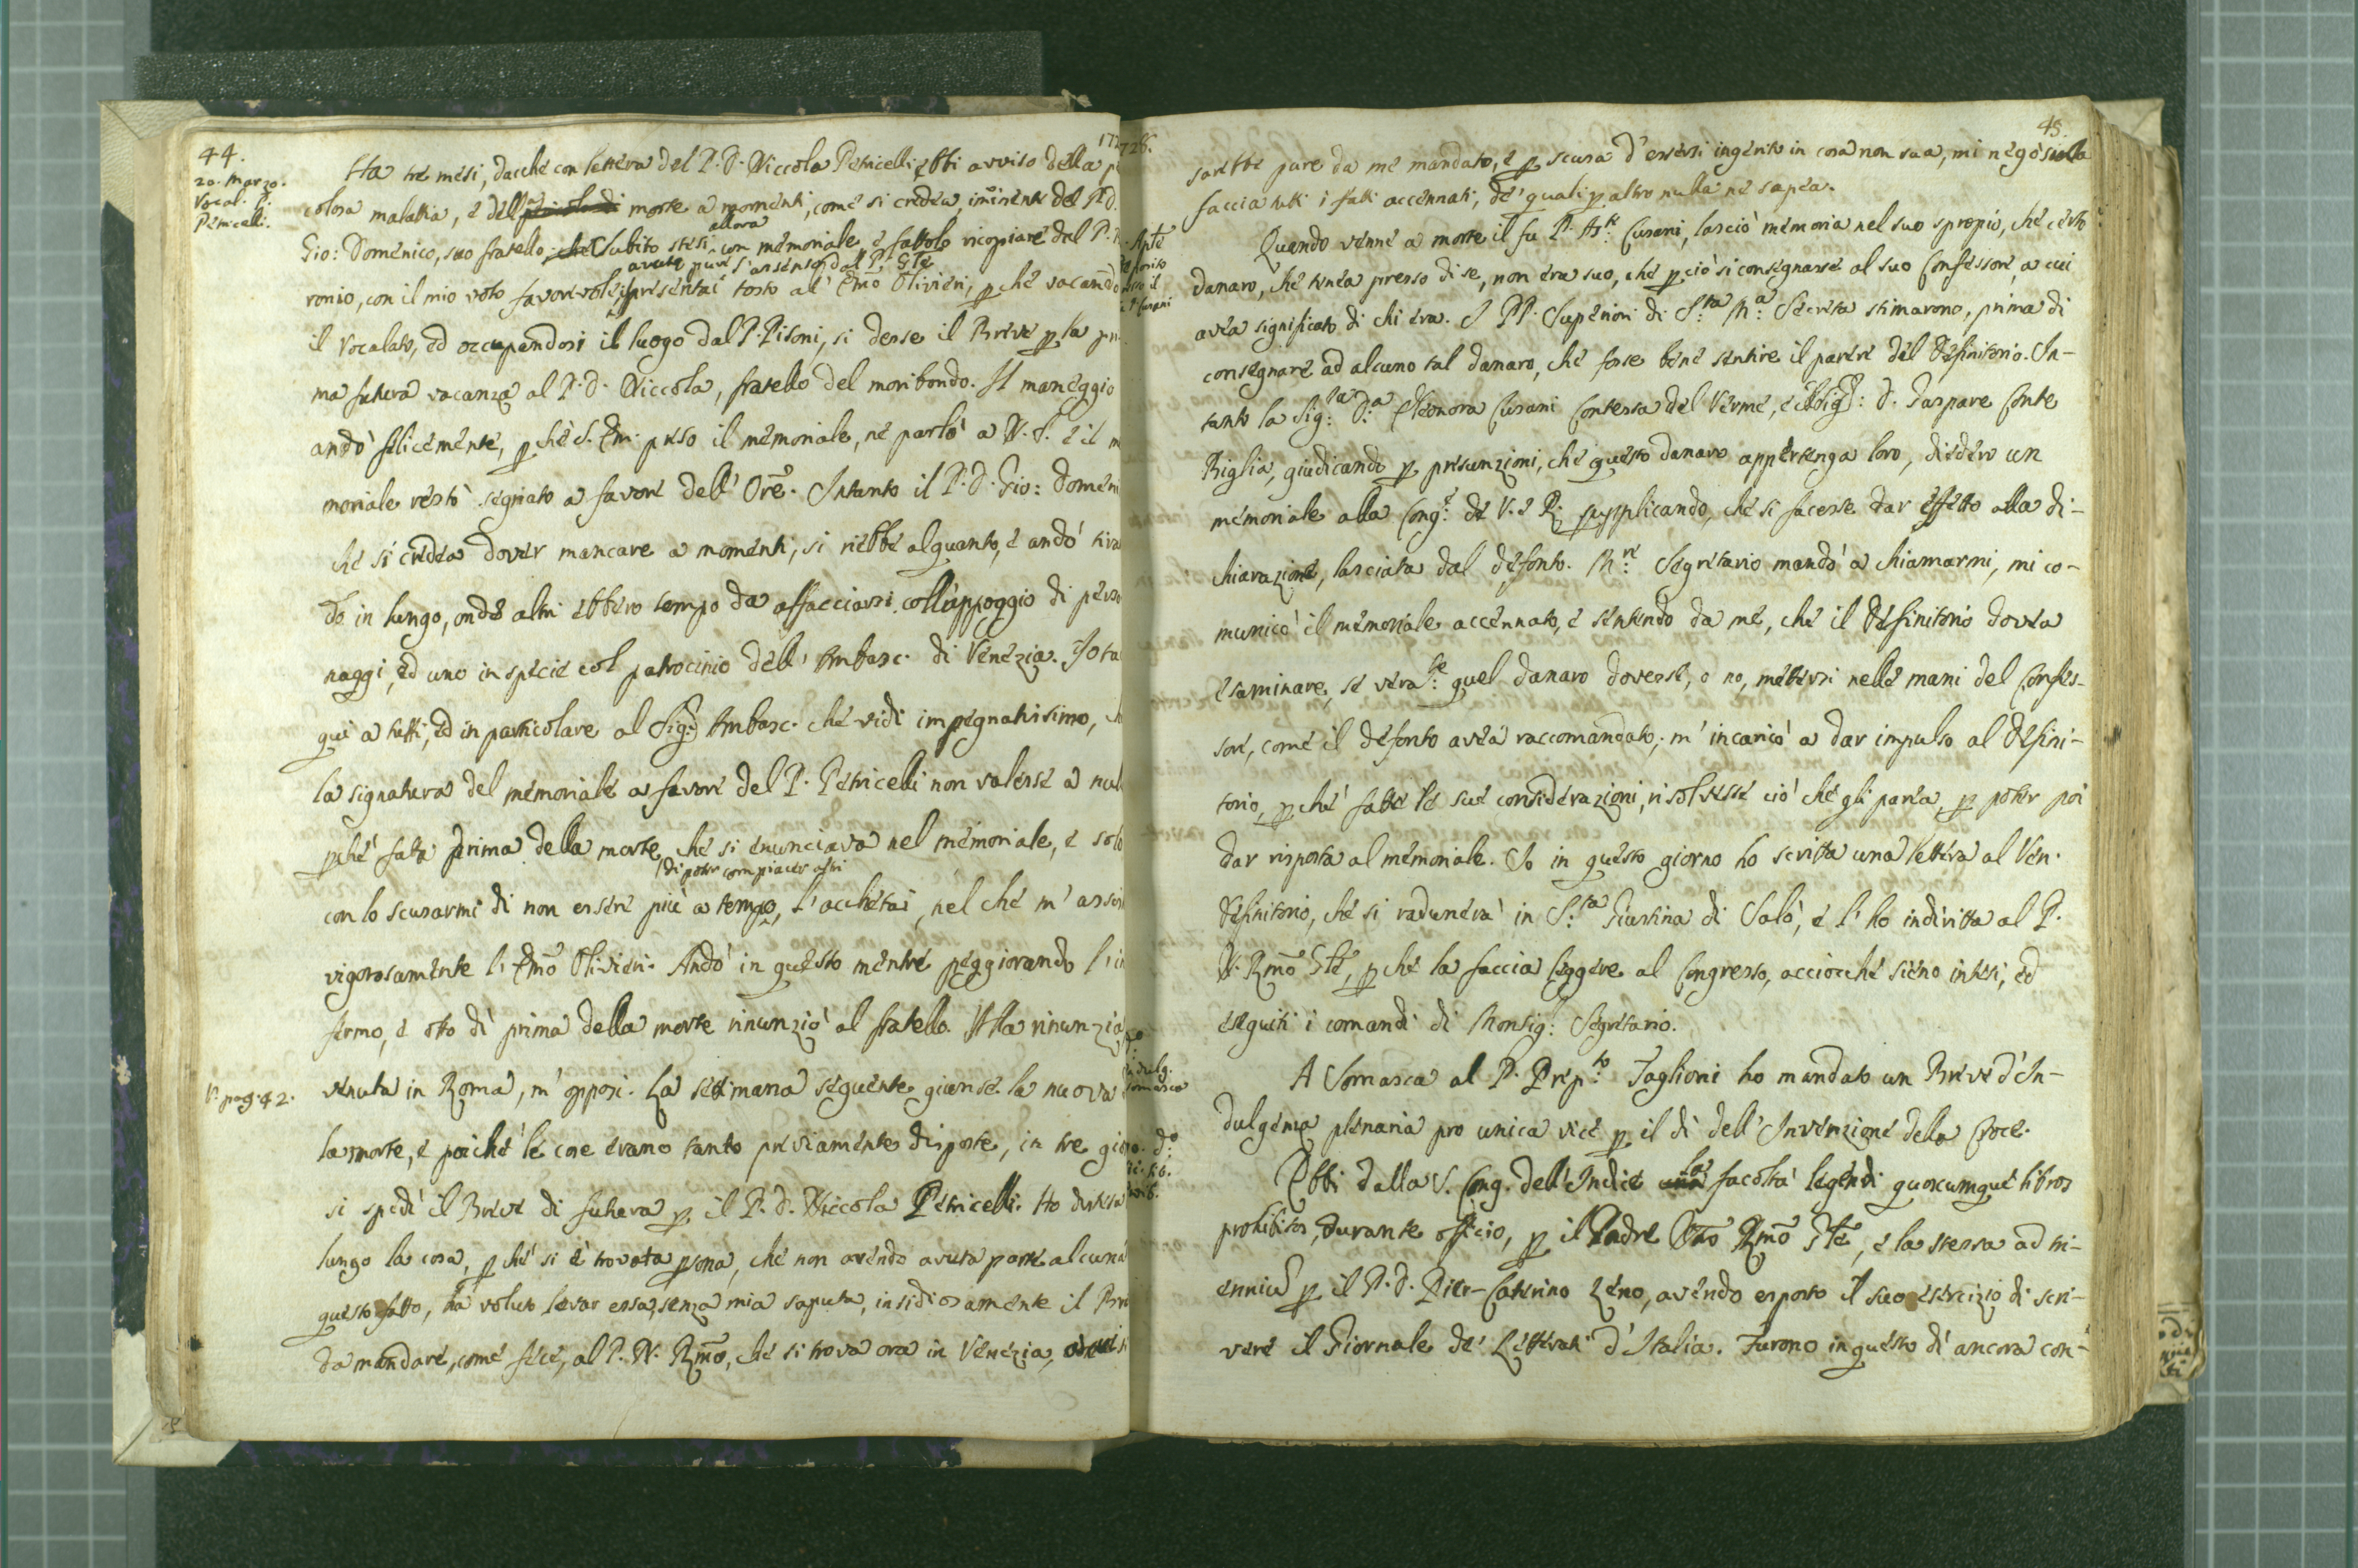 44.
20. Marzo.
Vocal. P.
Petricelli.
Ha tre mesi, dacchè con lettera del P. D. Niccola Petricelli, ebbi avviso della
colosa malattia, e della morte a momenti, come si credea, iminente del P. D.
allora
Gio: Domenico, suo fratello. Subito stesi un memoriale, e fattolo ricopiare dal P.
avuto pure l'assenso dal P. Gle
ronio, con il mio voto favorevole, presentai tosto al' Emo Olivieri, pchè vacando
il Vocalato, ed occupandosi il luogo dal P. Pisoni, si desse il Breve p la pri
ma futura vacanza al P. D. Niccola, fratello del moribondo. Il maneggio
andò felicemente, pchè S. Em. preso il memoriale, ne parlò a N. S. e il m
moriale restò segnato a favore dell' Ore. Intanto il P. D. Gio: Domeni
che si credea dover mancare a momenti, si riebbe alquanto, e andò tiran
do in lungo, onde altri ebbero tempo da affacciarsi coll'appoggio di perso
naggi, ed uno in specie col patrocinio dell' Ambasc. di Venezia. Io ta
qui a tutti, ed in particolare al Sig. Ambasc. che vidi impegnatissimo, ch
la signatura del memoriale a favore del P. Petricelli non valesse a nul
pchè fatta prima della morte, che si enunciava nel memoriale, e solo
di poter compiacer altri
con lo scusarmi di non essere più a tempo, l'acchetai, nel che m' assist
vigorosamente l' Emo Olivieri. Andò in questo mentre peggiorando l'in
fermo, e otto dì prima della morte rinunziò al fratello. Alla rinunzia
V. pag. 42.
venuta in Roma, m' opposi. La settimana seguente giunse la nuova
la morte, e poichè le cose erano tanto previamente disposte, in tre gior
si spedì il Breve di futura p il P. D. Niccola Petricelli. Ho
lungo la cosa, pchè si è trovata psona, che non avendo avuta parte alcuna
questo fatto, ha voluto levar essa, senza mia saputa, insidiosamente il Bre
da mandare, come fece, al P. N. Rmo, che si trova ora in Venezia,
45.
sarebbe pure da me mandato, e p scusa d'essersi ingerito in cosa non sua, mi negò sulla
faccia tutti i fatti accennati, de' quali p altro nulla ne sapea.
Quando venne a morte il fu P. Cusani, lasciò memoria nel suo spropio, che certo
danaro, che tenea presso di se, non era suo, che pciò si consegnasse al suo Confessore, a cui
avea significato di chi era. I PP. Superiori di S.ta M.a Secreta stimarono, prima di
consegnare ad alcuno tal danaro, che fosse bene sentire il parere del Definitorio. In-
tanto la Sig.ra D.a Eleonora Cusani Contessa del Verme, e il Sig.: D. Gaspare Conte
Biglia, giudicando p presunzioni, che questo danaro appertenga loro, diedero un
memoriale alla Cong.e de V. e R. supplicando, che si facesse dar effetto alla di-
chiarazione, lasciata dal defonto. M.re Segretario mandò a chiamarmi, mi co-
municò il memoriale accennato, e sentendo da me, che il Definitorio dovea
esaminare, se vera.te quel danaro dovesse, o no, mettersi nelle mani del Confes-
sore, come il defonto avea raccomandato, m' incaricò a dar impulso al Defini-
torio, pchè fatte le sue considerazioni, risolvesse ciò che gli parea, p poter poi
dar risposta al memoriale. Io in questo giorno ho scritta una lettera al Ven.
Definitorio, che si radunerà in S.ta Giustina di Salò, e l' ho indiritta al P.
N. Rmo Gle, pchè la faccia leggere al Congresso, acciocchè sieno intesi, ed
eseguiti i comandi di Monsig.r Segretario.
A Somasca al P. Prep.to Taglioni ho mandato un Breve d'In-
dulgenza plenaria pro unica vice p il dì dell' Invenzione dela Croce.
Ebbi dalla S. Cong. dell'Indice la facoltà legendi quoscumque libros
prohibitos, durante officio, p il Padre Nro Rmo Gle, e la stessa ad tri-
ennium p il P. D. Pier-Caterino Zeno, avendo esposto il suo esercizio di scri-
vere il Giornale de' Letterati d'Italia. Furono in questo dì ancora con-